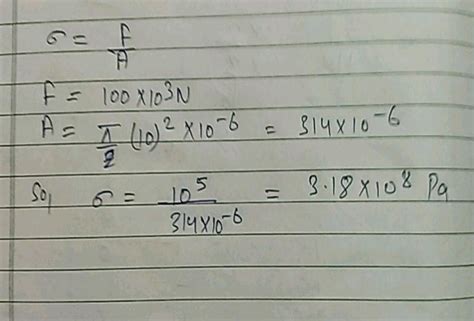 σ = F/A
F = 100 × 10³ N
A = π/2 (10)² × 10⁻⁶ = 314 × 10⁻⁶
So, σ = 10⁵/314 × 10⁻⁶ = 3.18 × 10⁸ Pa